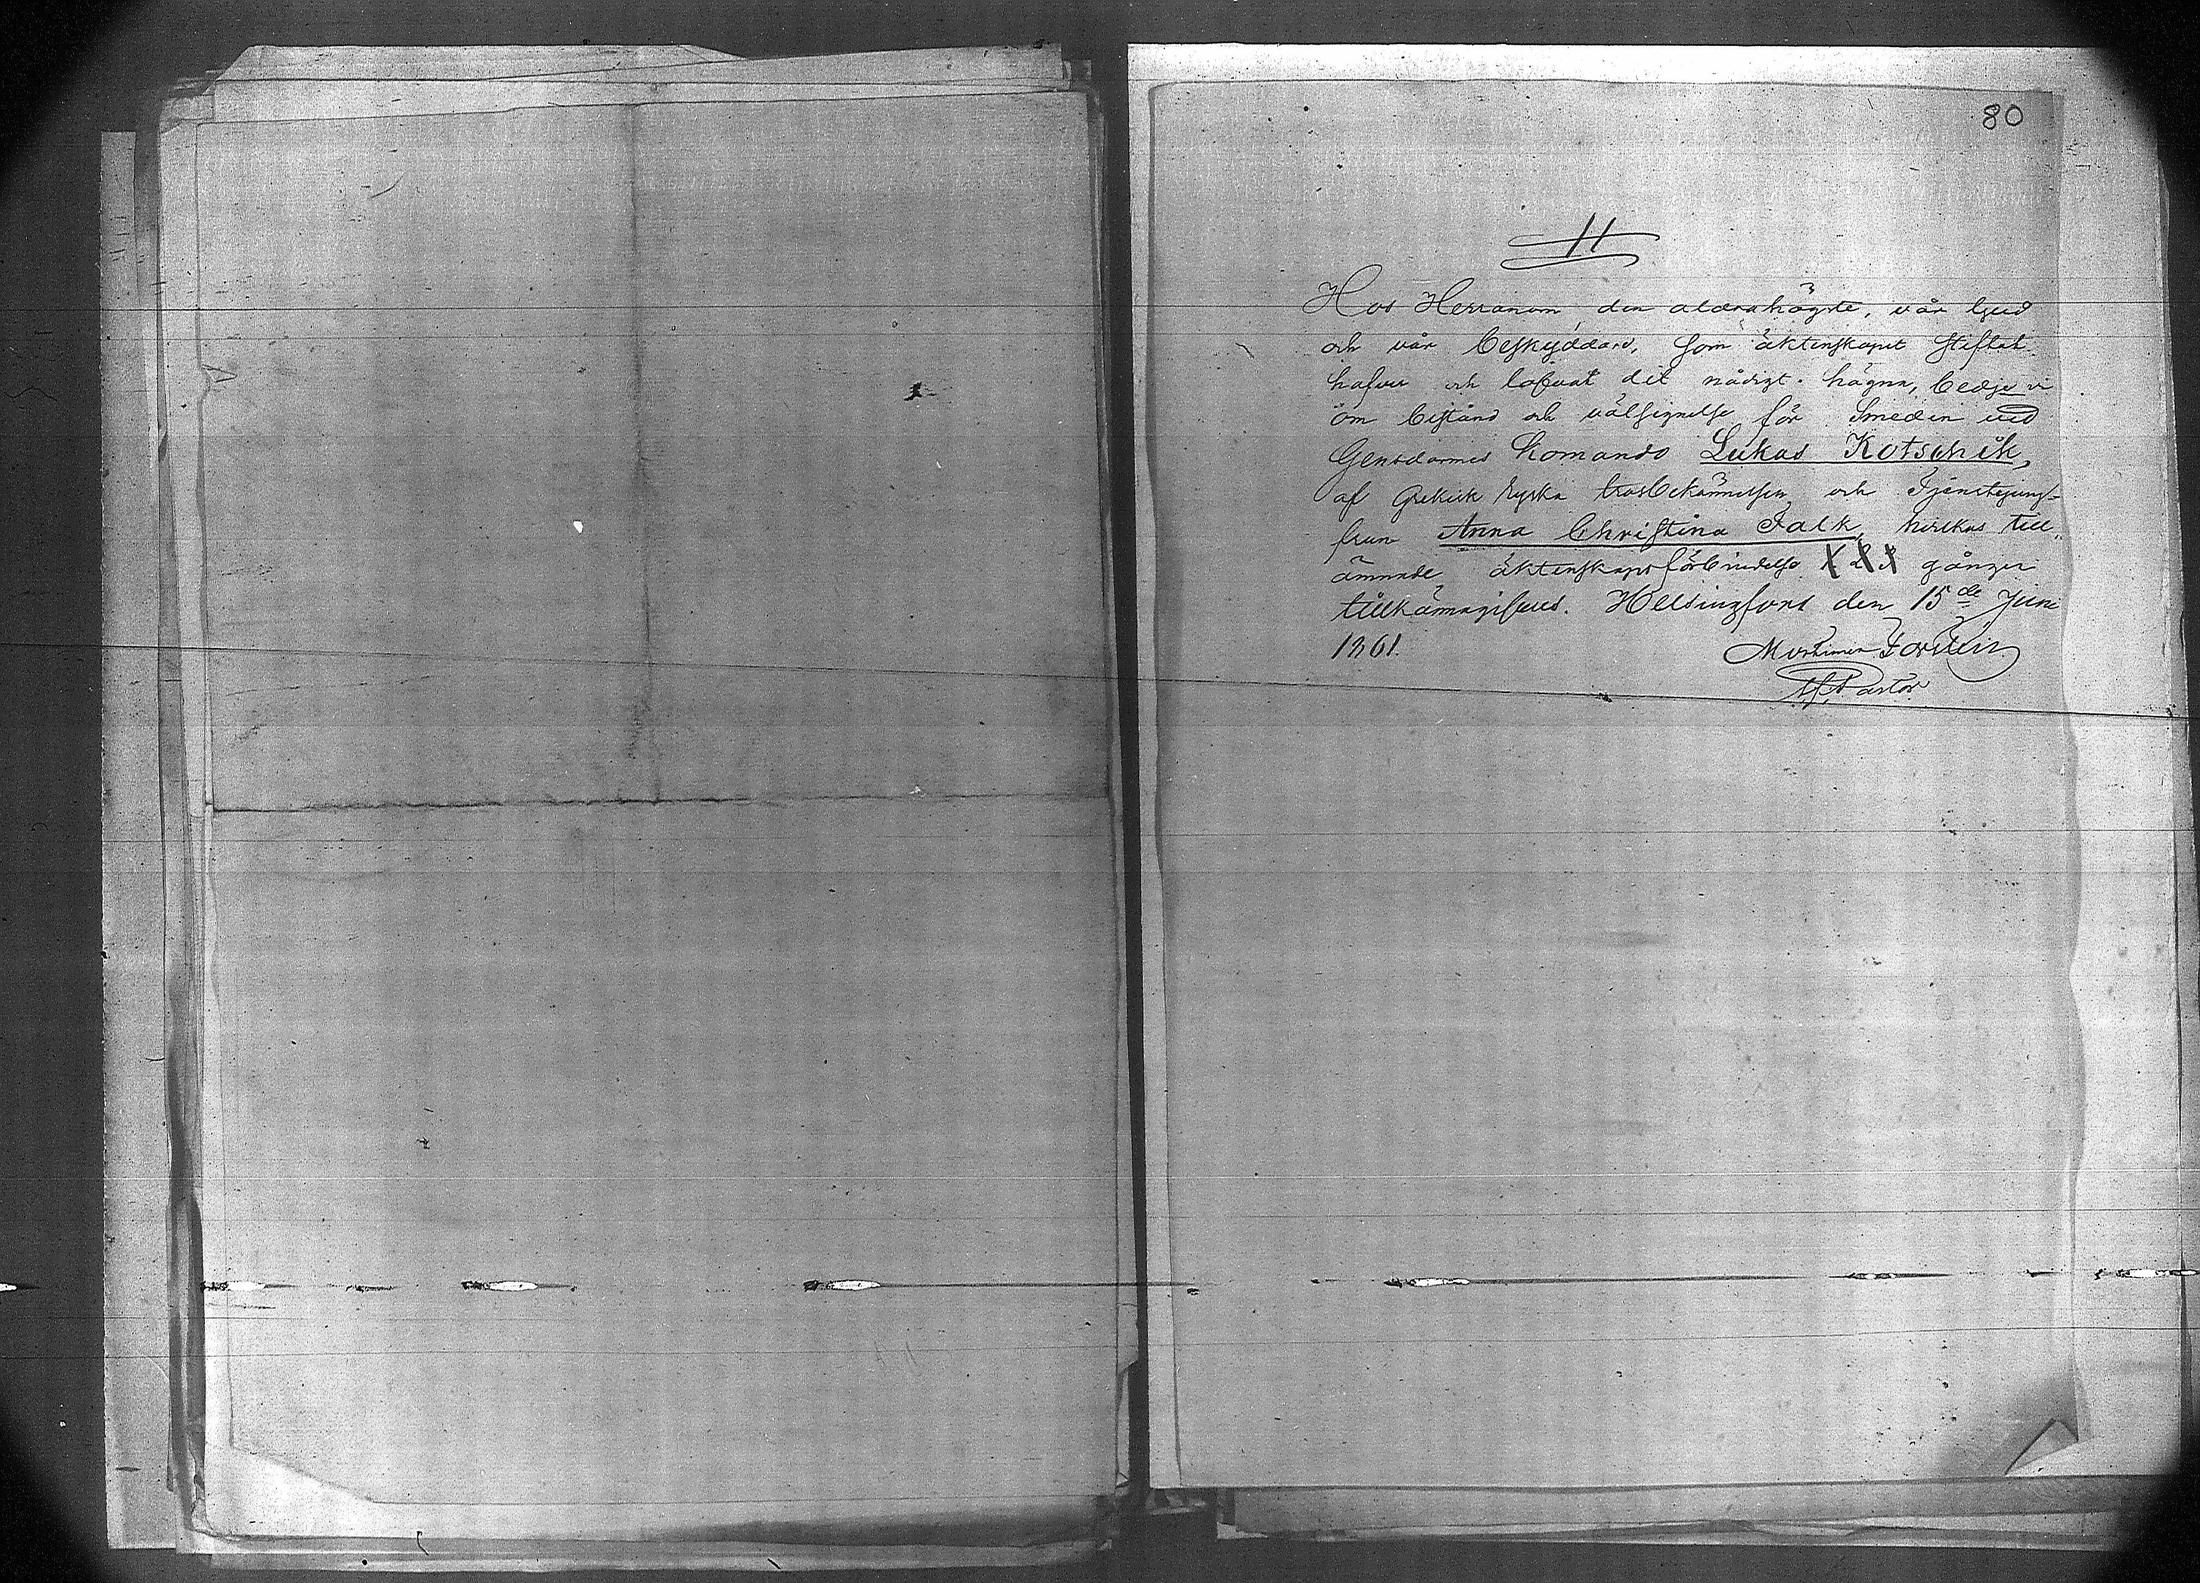 80
11
Hos Herranom, den aldrahögste, vår ljud
och vår beskyddare, som äktenskapet stiftat
hafver och lofvat det nådigt hägna, bedje vi
om bistånd och välsignelse för Smeden vid
Gensdarmes Komando Lukas Kotschik,
af Grekisk Ryska trosbekännelsen och Tjenstejung-
frun Anna Christina Falk, hvilkas till-
ämnade äktenskapsförbindelse gånger
tillkännagifves. Helsingfors den 15de Juni
1861.
Pastor